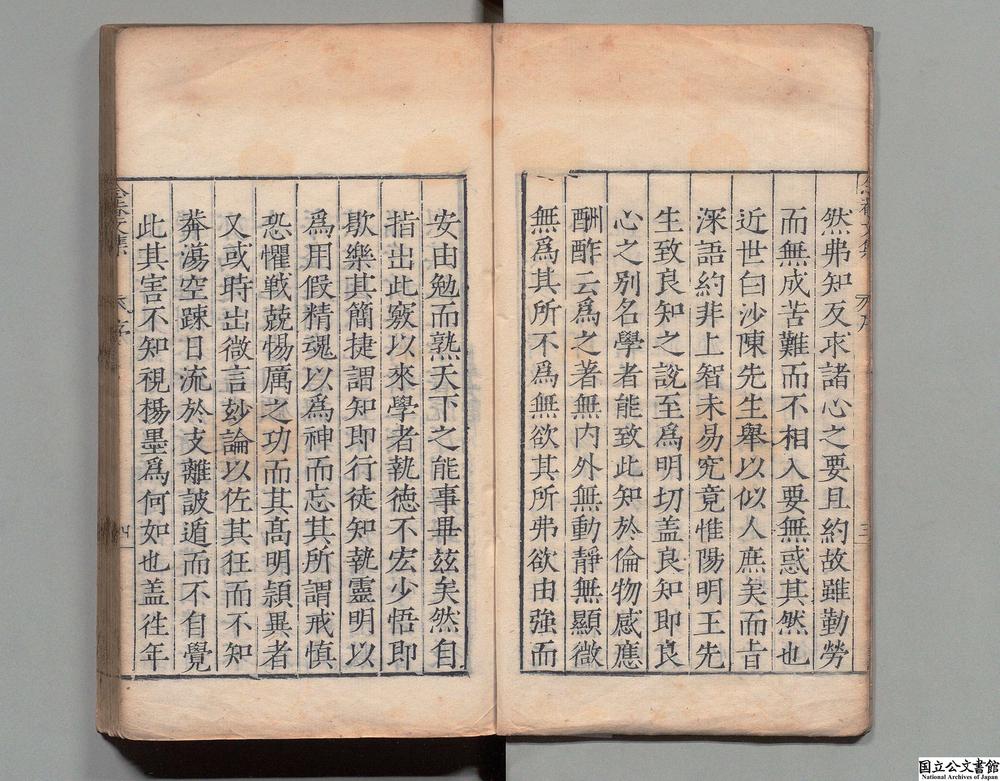 然弗知反求諸心之要且約故雖勤勞
而無成苦難而不相入要無惑其然也
近世白沙陳先生舉以似人庶矣而㫖
深語約非上智未易究竟惟陽明王先
生致良知之說至為明切盖良知即良
心之别名學者能致此知於倫物感應
酬酢云為之著無内外無動靜無顯微
無為其所不為無欲其所弗欲由強而
三
安由勉而熟天下之能事畢兹矣然自
指出此竅以來學者執徳不宏少悟即
歇樂其簡捷謂知即行徒知執靈明以
為用假精魂以為神而忘其所謂戒慎
恐懼戰兢惕厲之功而其髙明頴異者
又或時出微言玅論以佐其狂而不知
莾蕩空踈日流於支離詖遁而不自覺
此其害不知視楊墨為何如也盖徃年
文集
序
四
国立公文書館
National Archives of Japan